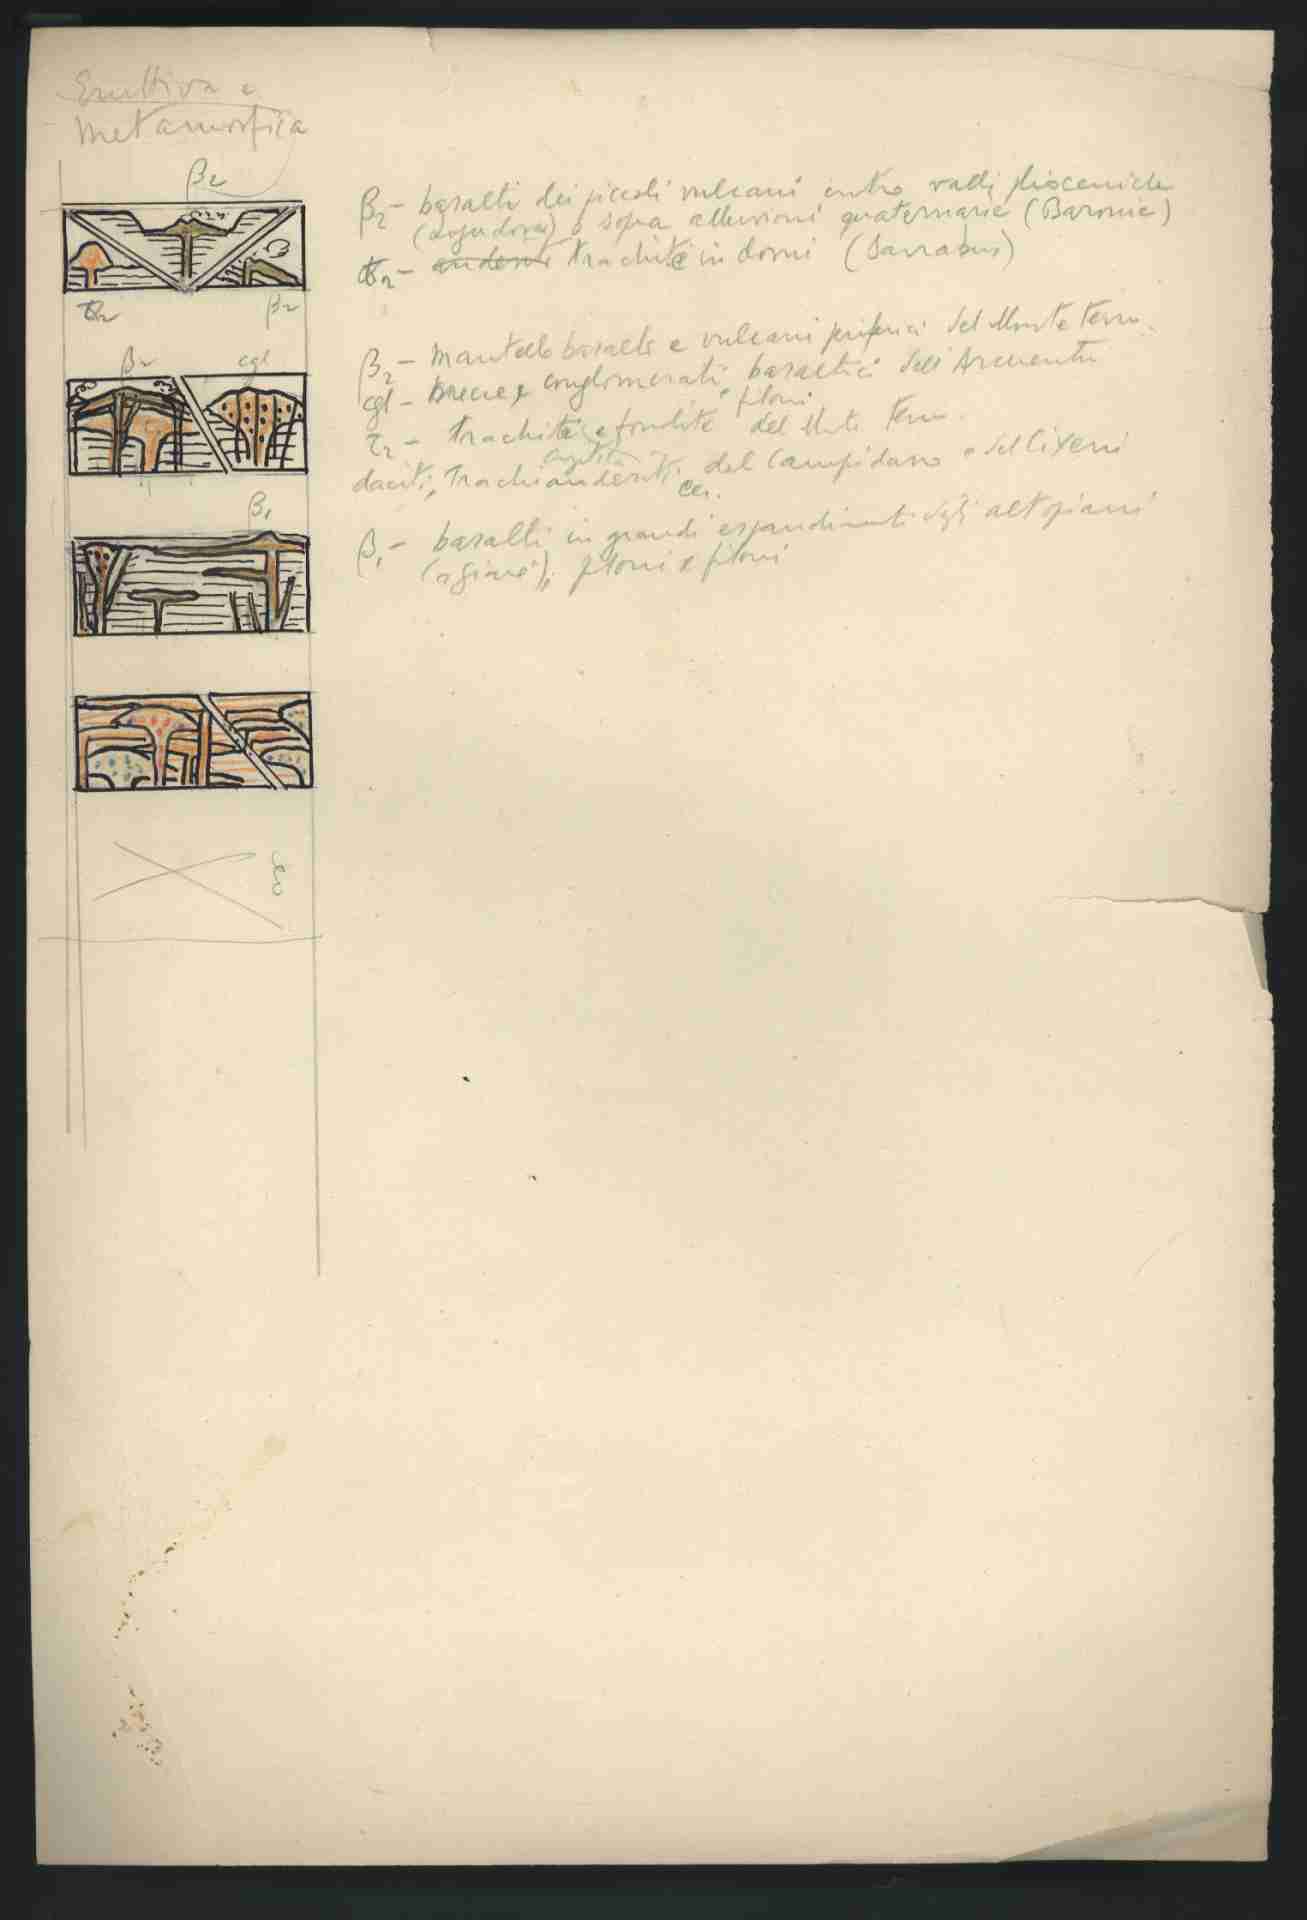 Eruttiva e
metamorfica
β2
β2 - basalti dei piccoli vulcani entro valli plioceniche
(Logudoro) o sopra alluvioni quaternarie (Baronie)
τ2 - andesiti trachite in domi (Sarrabus)
τ2
β2
β2
cgl
β2 - Mantello basalti e vulcani periferici del Monte Ferru.
cgl - Brecce, conglomerati basaltici dell'Arcuentu
e filoni
τ2 - trachite e fonolite del Monte Ferru.
augitiche
daciti, Trachiandesiti del Campidano e del Cixerri
ecc.
β1
β1 - basalti in grandi espandimenti degli altopiani
(o giare), filoni